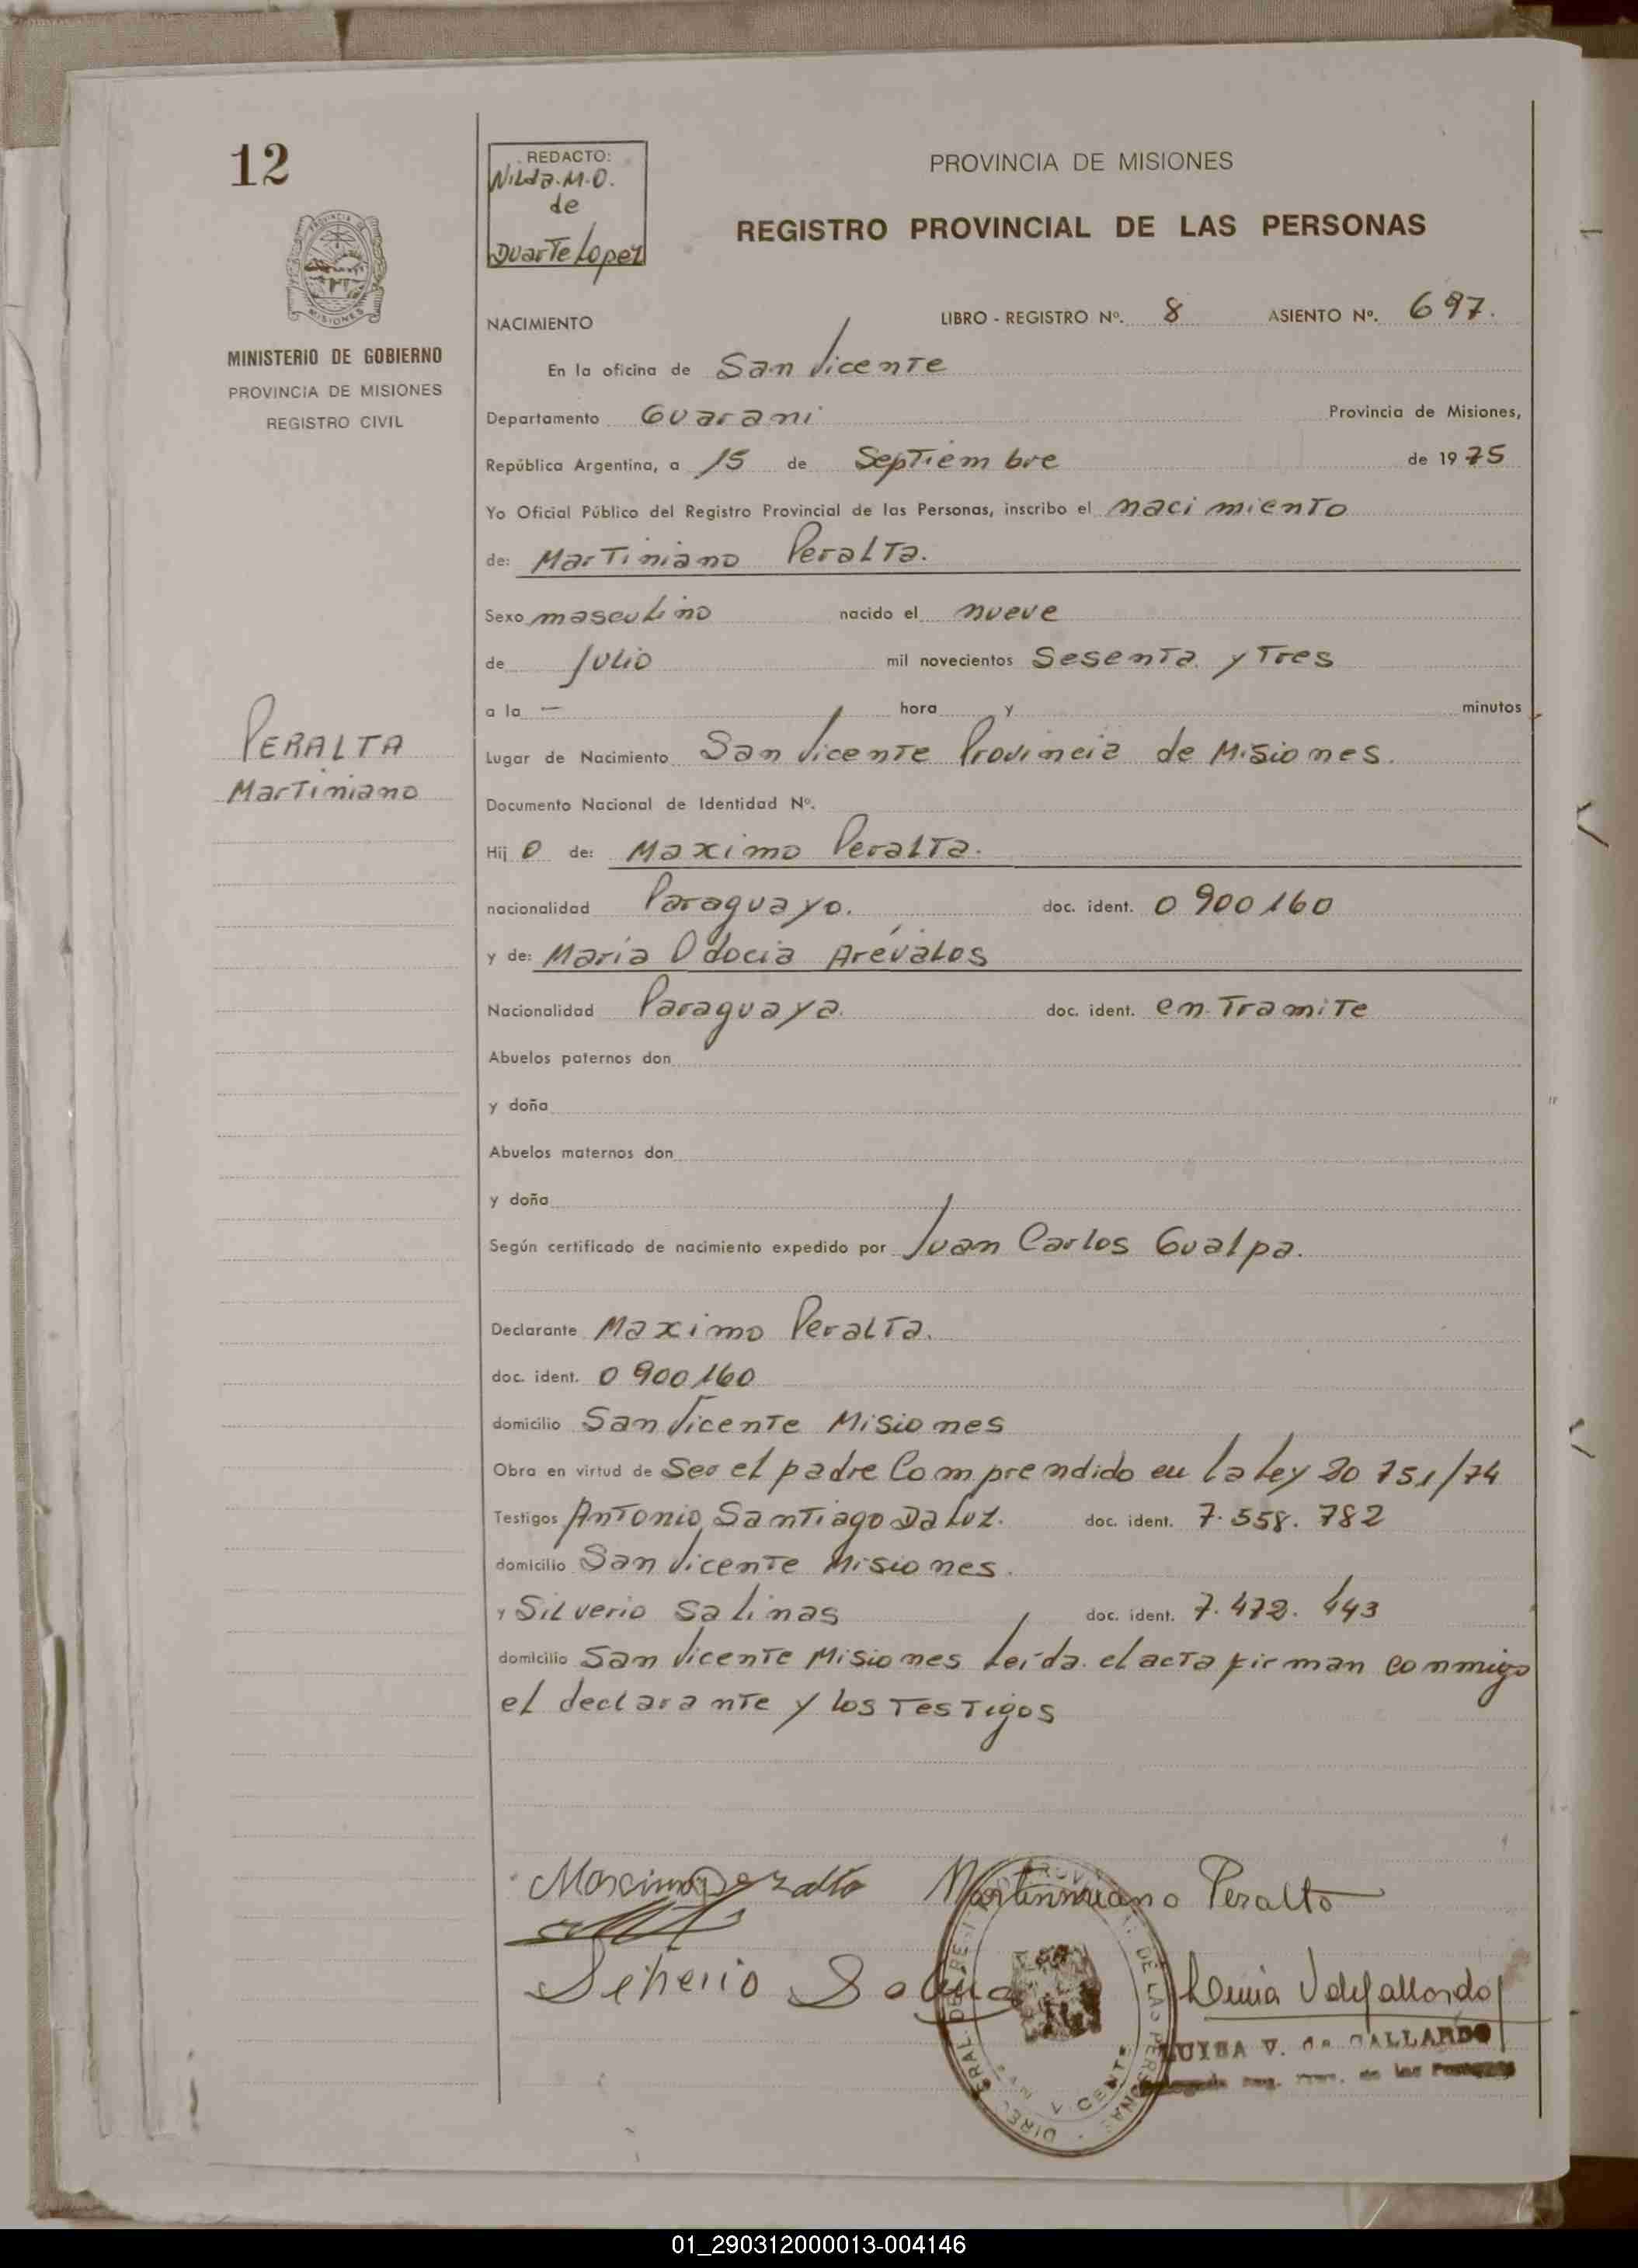 12
REDACTO:
Nilda.M.O.
de
Duarte Lopez
PROVINCIA DE MISIONES
REGISTRO PROVINCIAL DE LAS PERSONAS
MISIONES
MINISTERIO DE GOBIERNO
PROVINCIA DE MISIONES
REGISTRO CIVIL
NACIMIENTO LIBRO - REGISTRO Nº. 8 ASIENTO Nº. 697.
En la oficina de San Vicente
Departamento Guarani Provincia de Misiones,
República Argentina, a 15 de Septiembre de 1975
Yo Oficial Público del Registro Provincial de las Personas, inscribo el nacimiento
de: Martiniano Peralta.
Sexo masculino nacido el nueve
de Julio mil novecientos Sesenta y Tres
a la — hora y minutos
PERALTA
Martiniano
Lugar de Nacimiento San Vicente Provincia de Misiones.
Documento Nacional de Identidad Nº.
Hij o de: Maximo Peralta.
nacionalidad Paraguayo. doc. ident. 0900160
y de: María Odocia Arévalos
Nacionalidad Paraguaya. doc. ident. en Tramite
Abuelos paternos don
y doña
Abuelos maternos don
y doña
Según certificado de nacimiento expedido por Juan Carlos Gualpa.
Declarante Maximo Peralta.
doc. ident. 0900160
domicilio San Vicente Misiones
Obra en virtud de Ser el padre Comprendido en la Ley 20751/74
Testigos Antonio Santiago Da Luz. doc. ident. 7.558.782
domicilio San Vicente Misiones.
y Silverio Salinas doc. ident. 7.472.443
domicilio San Vicente Misiones Leída el acta firman conmigo
el declarante y los Testigos
Martinniano Peralto
LUISA V. de GALLARDO
01_290312000013-004146